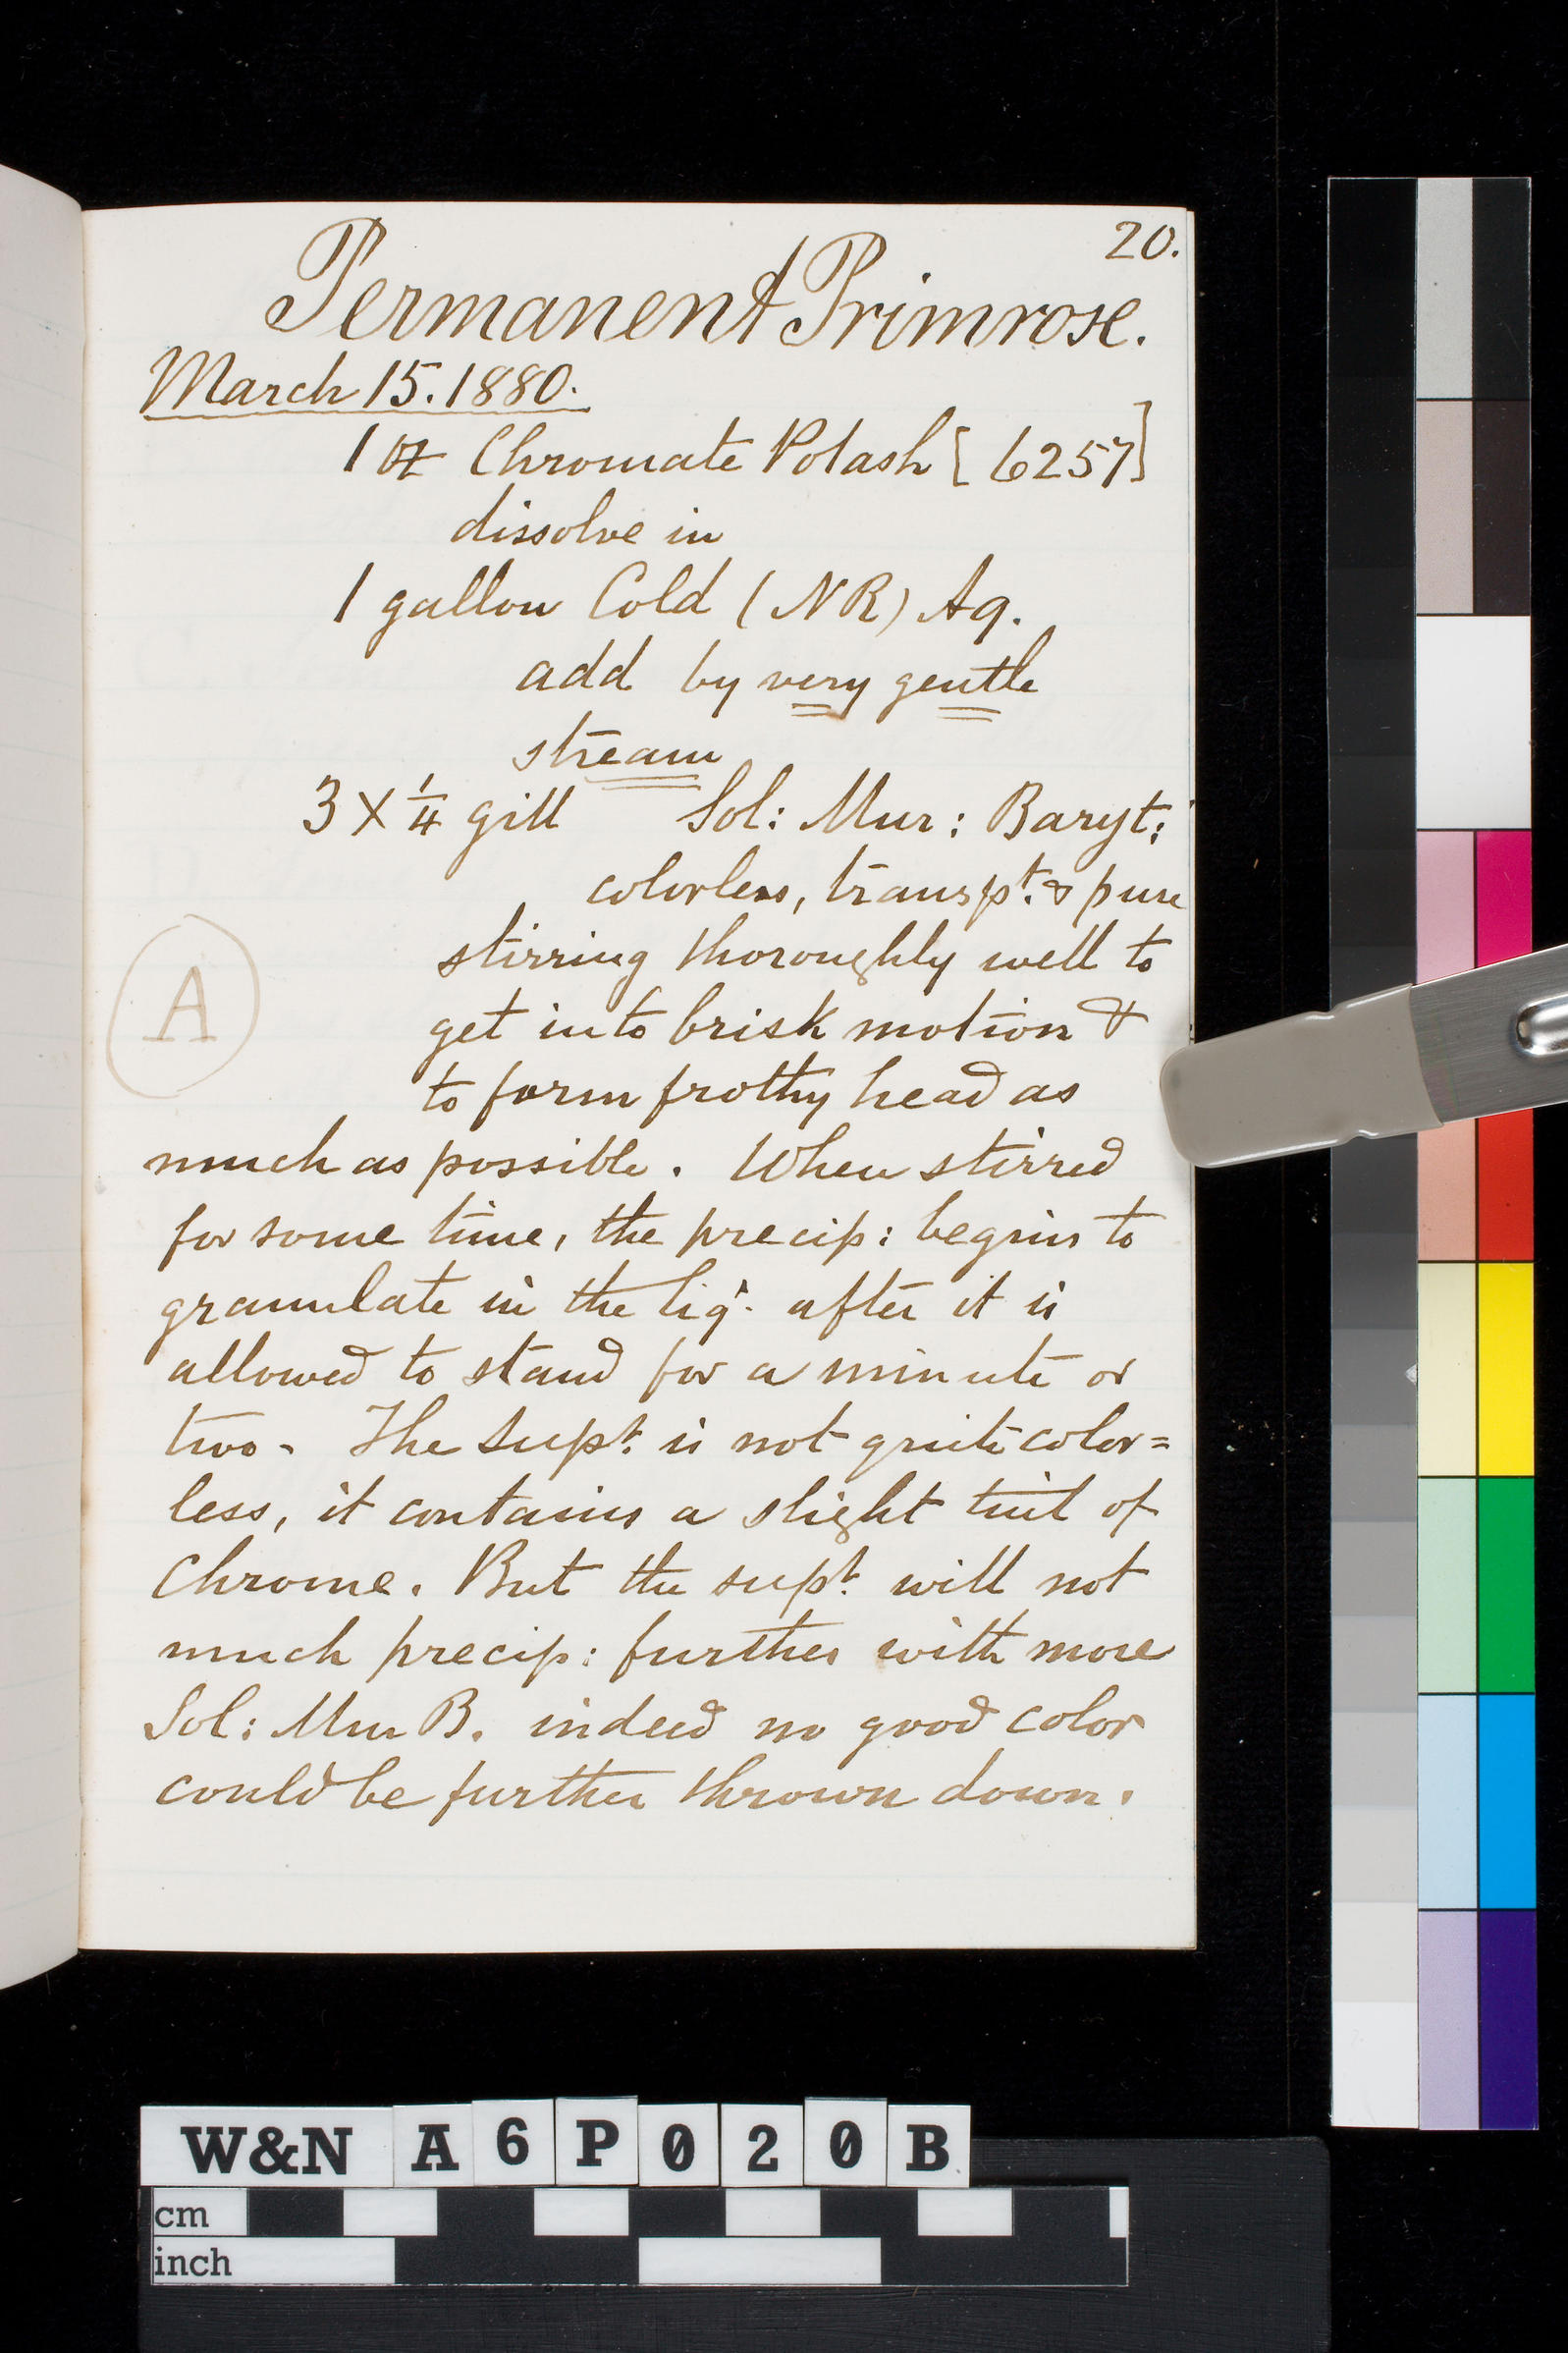 20.
Permanent Primrose.
March 15. 1880.
1 oz Chromate Potash [6257]
dissolve in
1 gallon Cold (NR) Aq.
add by very gentle
stream
3 X 1/4 gill Sol: Mur: Baryt:
colorless, transpt. & pure
stirring thoroughly well to
get into brisk motion &
to form frothy head as
A
much as possible. When stirred
for some time, the precip: begins to
granulate in the liq. after it is
allowed to stand for a minute or
two - The supt. is not quite color=
less, it contains a slight tint of
Chrome. But the supt. will not
much precip: further with more
Sol: Mur B. indeed no good color
could be further thrown down.
W&N A6P020B
cm
inch